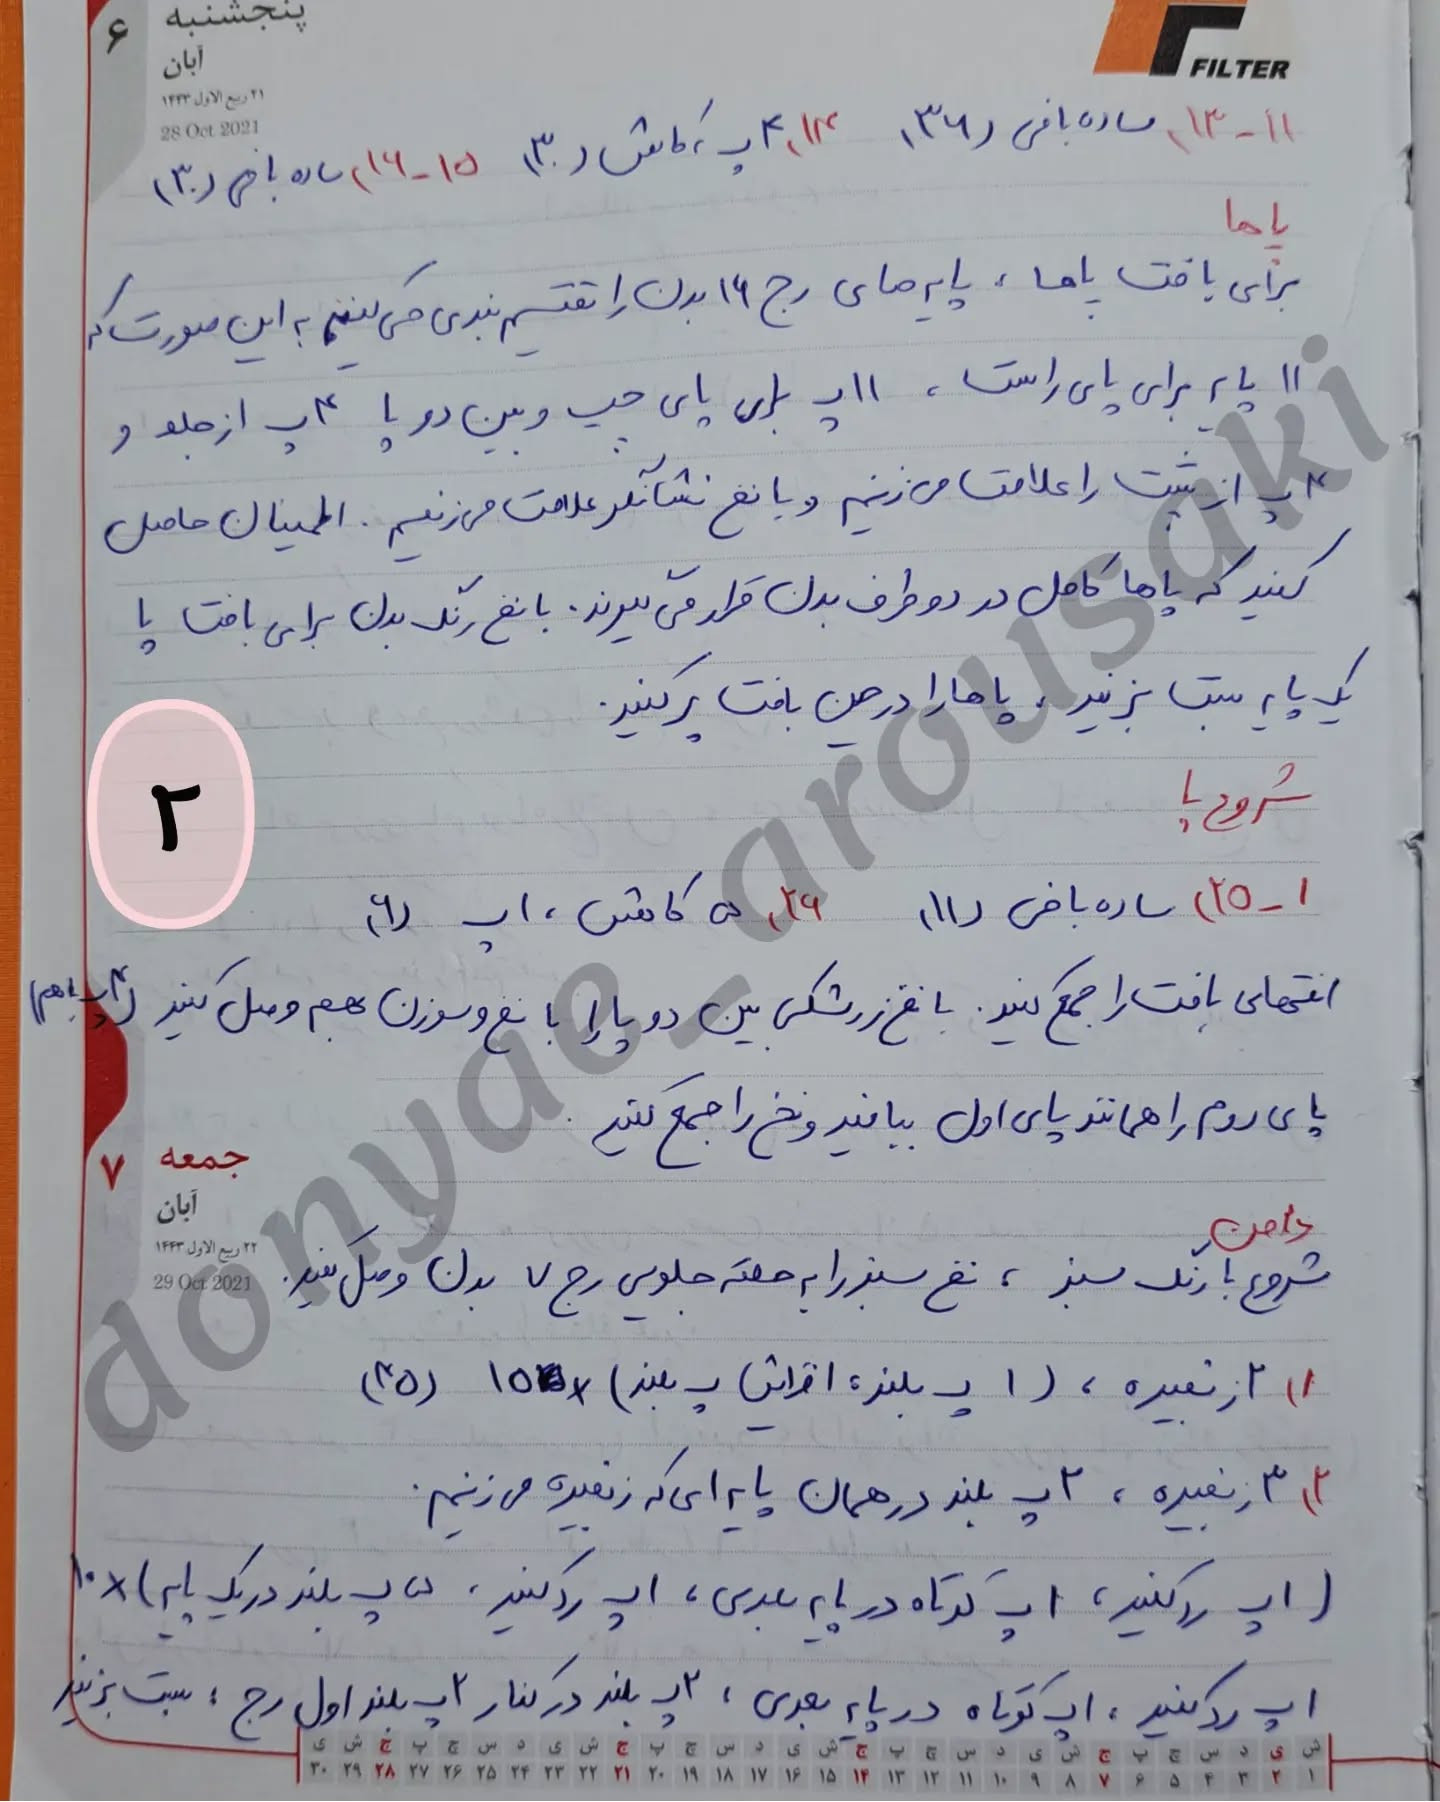 پنجشنبه ۶
آبان
۲۱ ربیع الاول ۱۴۴۳
28 Oct 2021
FILTER
۱۱-۱۳) ساده بافی (۳۶) ۱۴) ۴پ، کاهش (۳۰) ۱۵-۱۶) ساده بافی (۳۰)
پاها
برای بافت پاها، پایه های رج ۱۶ بدن را تقسیم بندی می کنیم به این صورت که
۱۱ پایه برای پای راست، ۱۱پ برای پای چپ و بین دو پا ۴پ از جلو و
۴پ از پشت را علامت می زنیم و با نخ نشانگر علامت می زنیم. اطمینان حاصل
کنید که پاها کامل در دو طرف بدن قرار می گیرند. با نخ رنگ بدن برای بافت پا
یک پایه ببت بزنید، پاها را در حین بافت پر کنید.
شروع پا
۱-۲۵) ساده بافی (۱۱) ۲۶) ۵ کاهش، ۱پ (۶)
انتهای بافت را جمع کنید. با نخ زرشکی بین دو پا را با نخ و سوزن بهم وصل کنید (۴پ باهم)
پای دوم را همانند پای اول ببافید و نخ را جمع کنید.
جمعه ۷
آبان
۲۲ ربیع الاول ۱۴۴۳
29 Oct 2021
دامن
شروع با رنگ سبز، نخ سبز را به حلقه جلویی رج ۷ بدن وصل کنید.
۱) ۲ زنجیره، (۱ پ بلند، افزایش پ بلند) ×۱۵ (۴۵)
۲) ۳ زنجیره، ۲پ بلند در همان پایه ای که زنجیره می زنیم.
(۱پ رد کنید، ۱پ کوتاه در پایه بعدی، ۱پ رد کنید، ۵پ بلند در یک پایه) ×۱۰
۱پ رد کنید، ۱پ کوتاه در پایه بعدی، ۲پ بلند در کنار ۲پ بلند اول رج، ببت بزنید
۲
donyae_arousaki
ش ی د س چ پ ج ش ی د س چ پ ج ش ی د س چ پ ج ش ی د س چ پ ج ش ی
۱ ۲ ۳ ۴ ۵ ۶ ۷ ۸ ۹ ۱۰ ۱۱ ۱۲ ۱۳ ۱۴ ۱۵ ۱۶ ۱۷ ۱۸ ۱۹ ۲۰ ۲۱ ۲۲ ۲۳ ۲۴ ۲۵ ۲۶ ۲۷ ۲۸ ۲۹ ۳۰